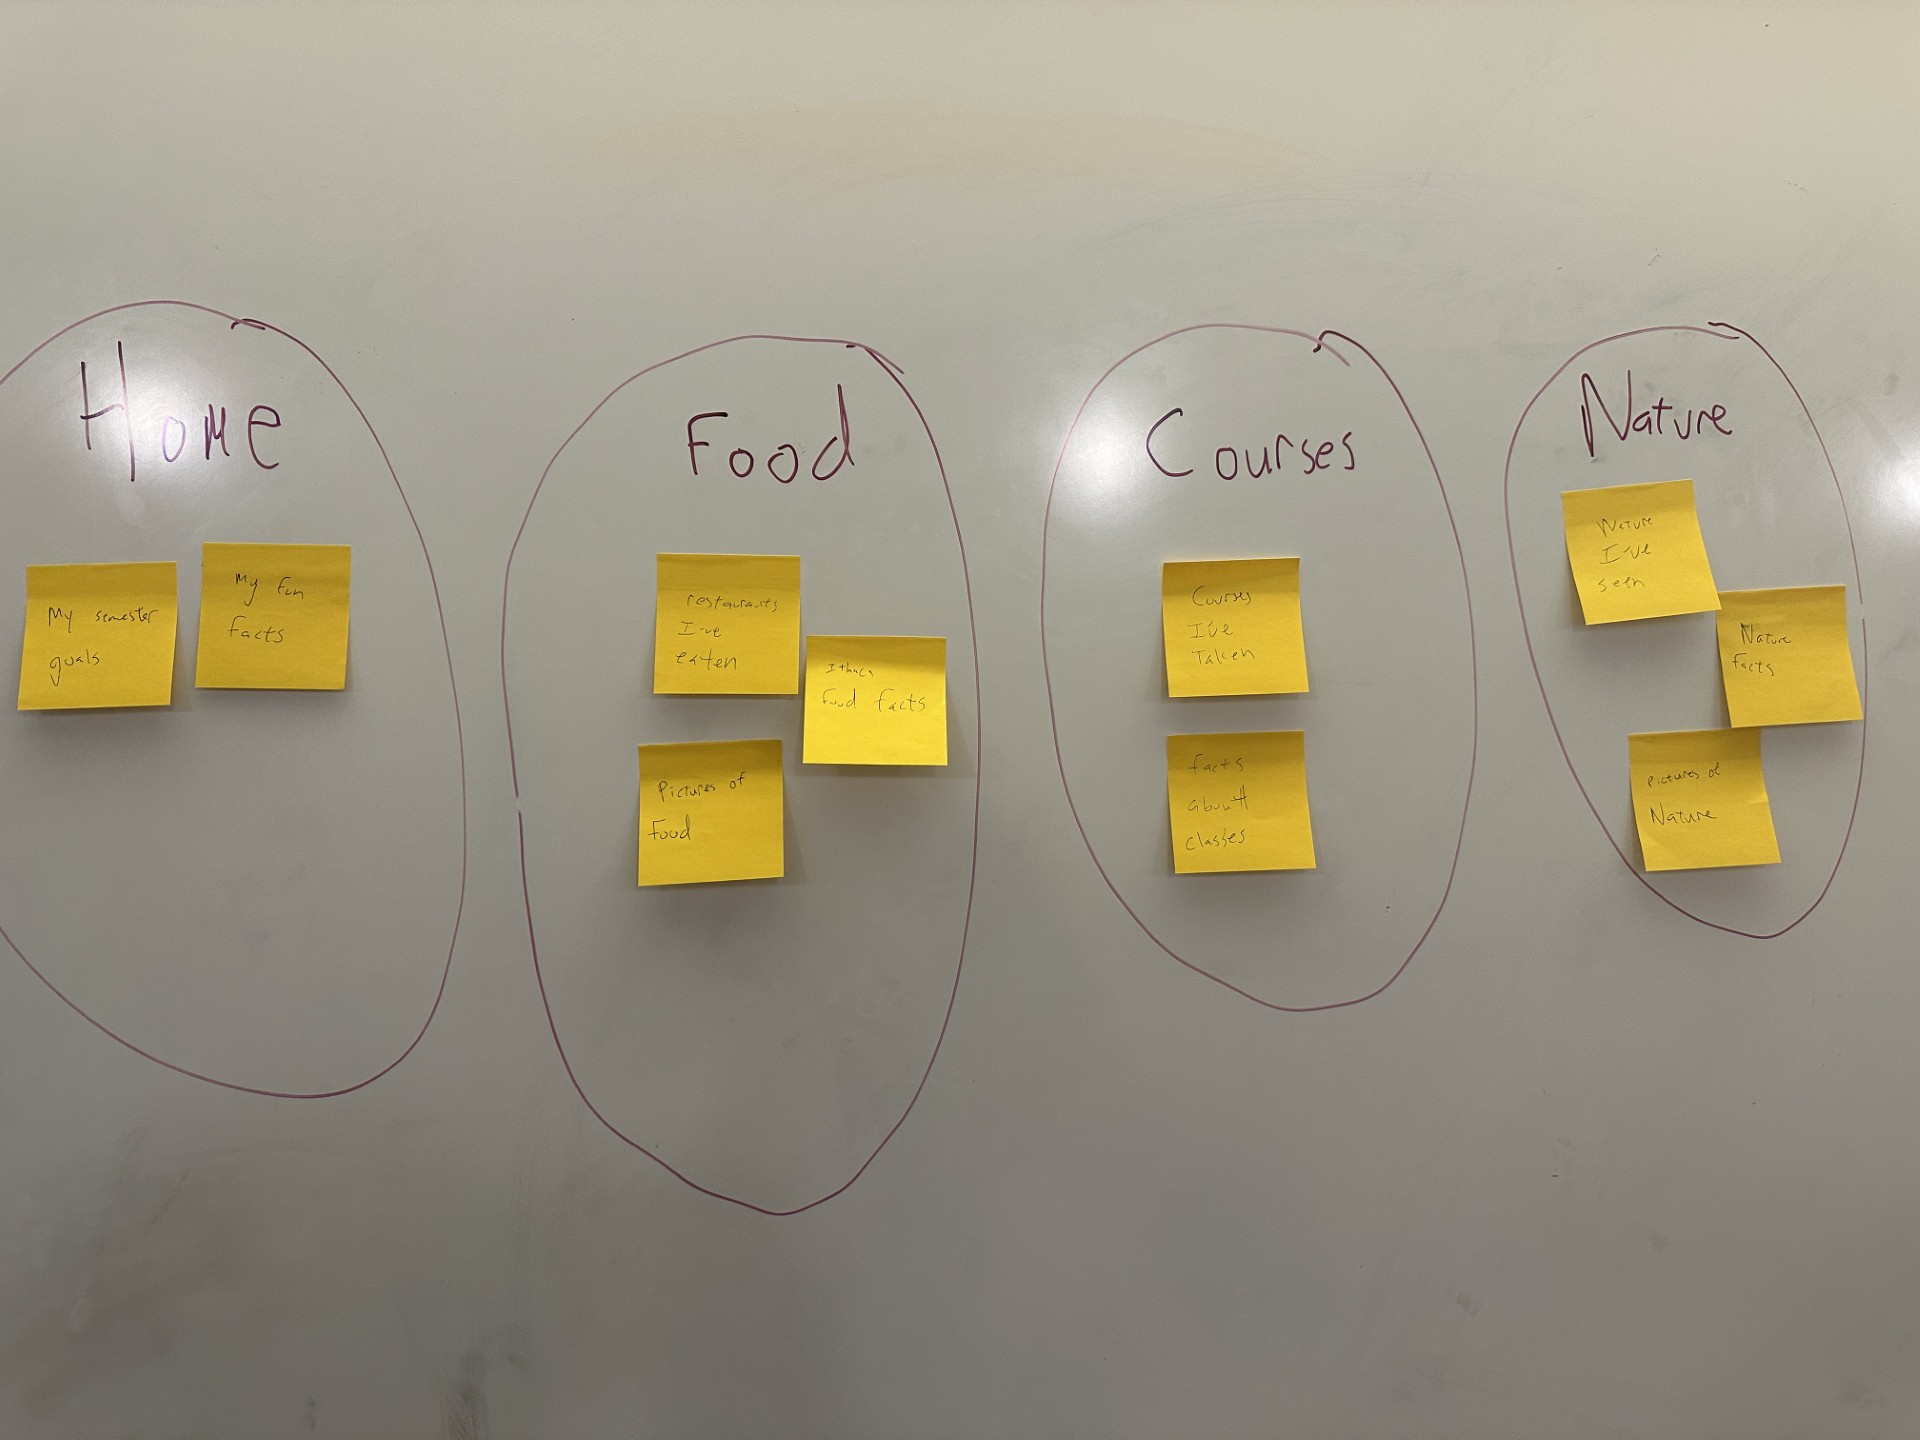 Home
My semester
goals
My fun
facts
Food
restaurants
I've
eaten
Ithaca
Food facts
Pictures of
Food
Courses
Courses
I've
Taken
facts
about
classes
Nature
Nature
I've
seen
Nature
facts
pictures of
Nature